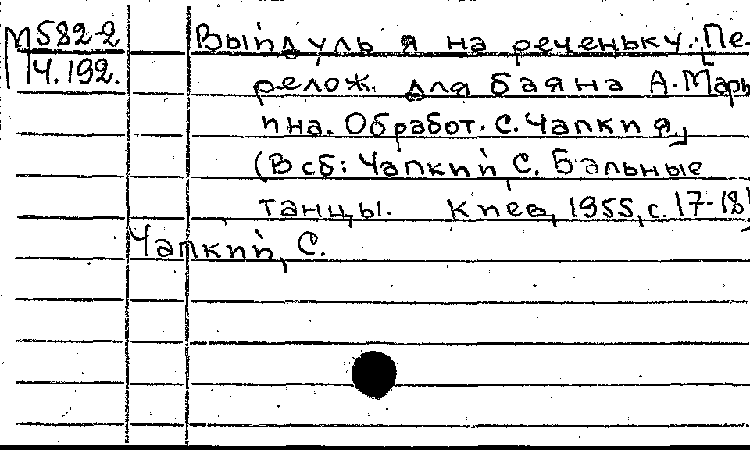 М 582-2
14.192.
Выйду ль я на реченьку. [Пе-
релож. для баяна А. Марь-
ина. Обработ. С. Чапкия]
(В сб: Чапкий, С. Бальные
танцы. Киев, 1955, с. 17-18)
Чапкий, С.